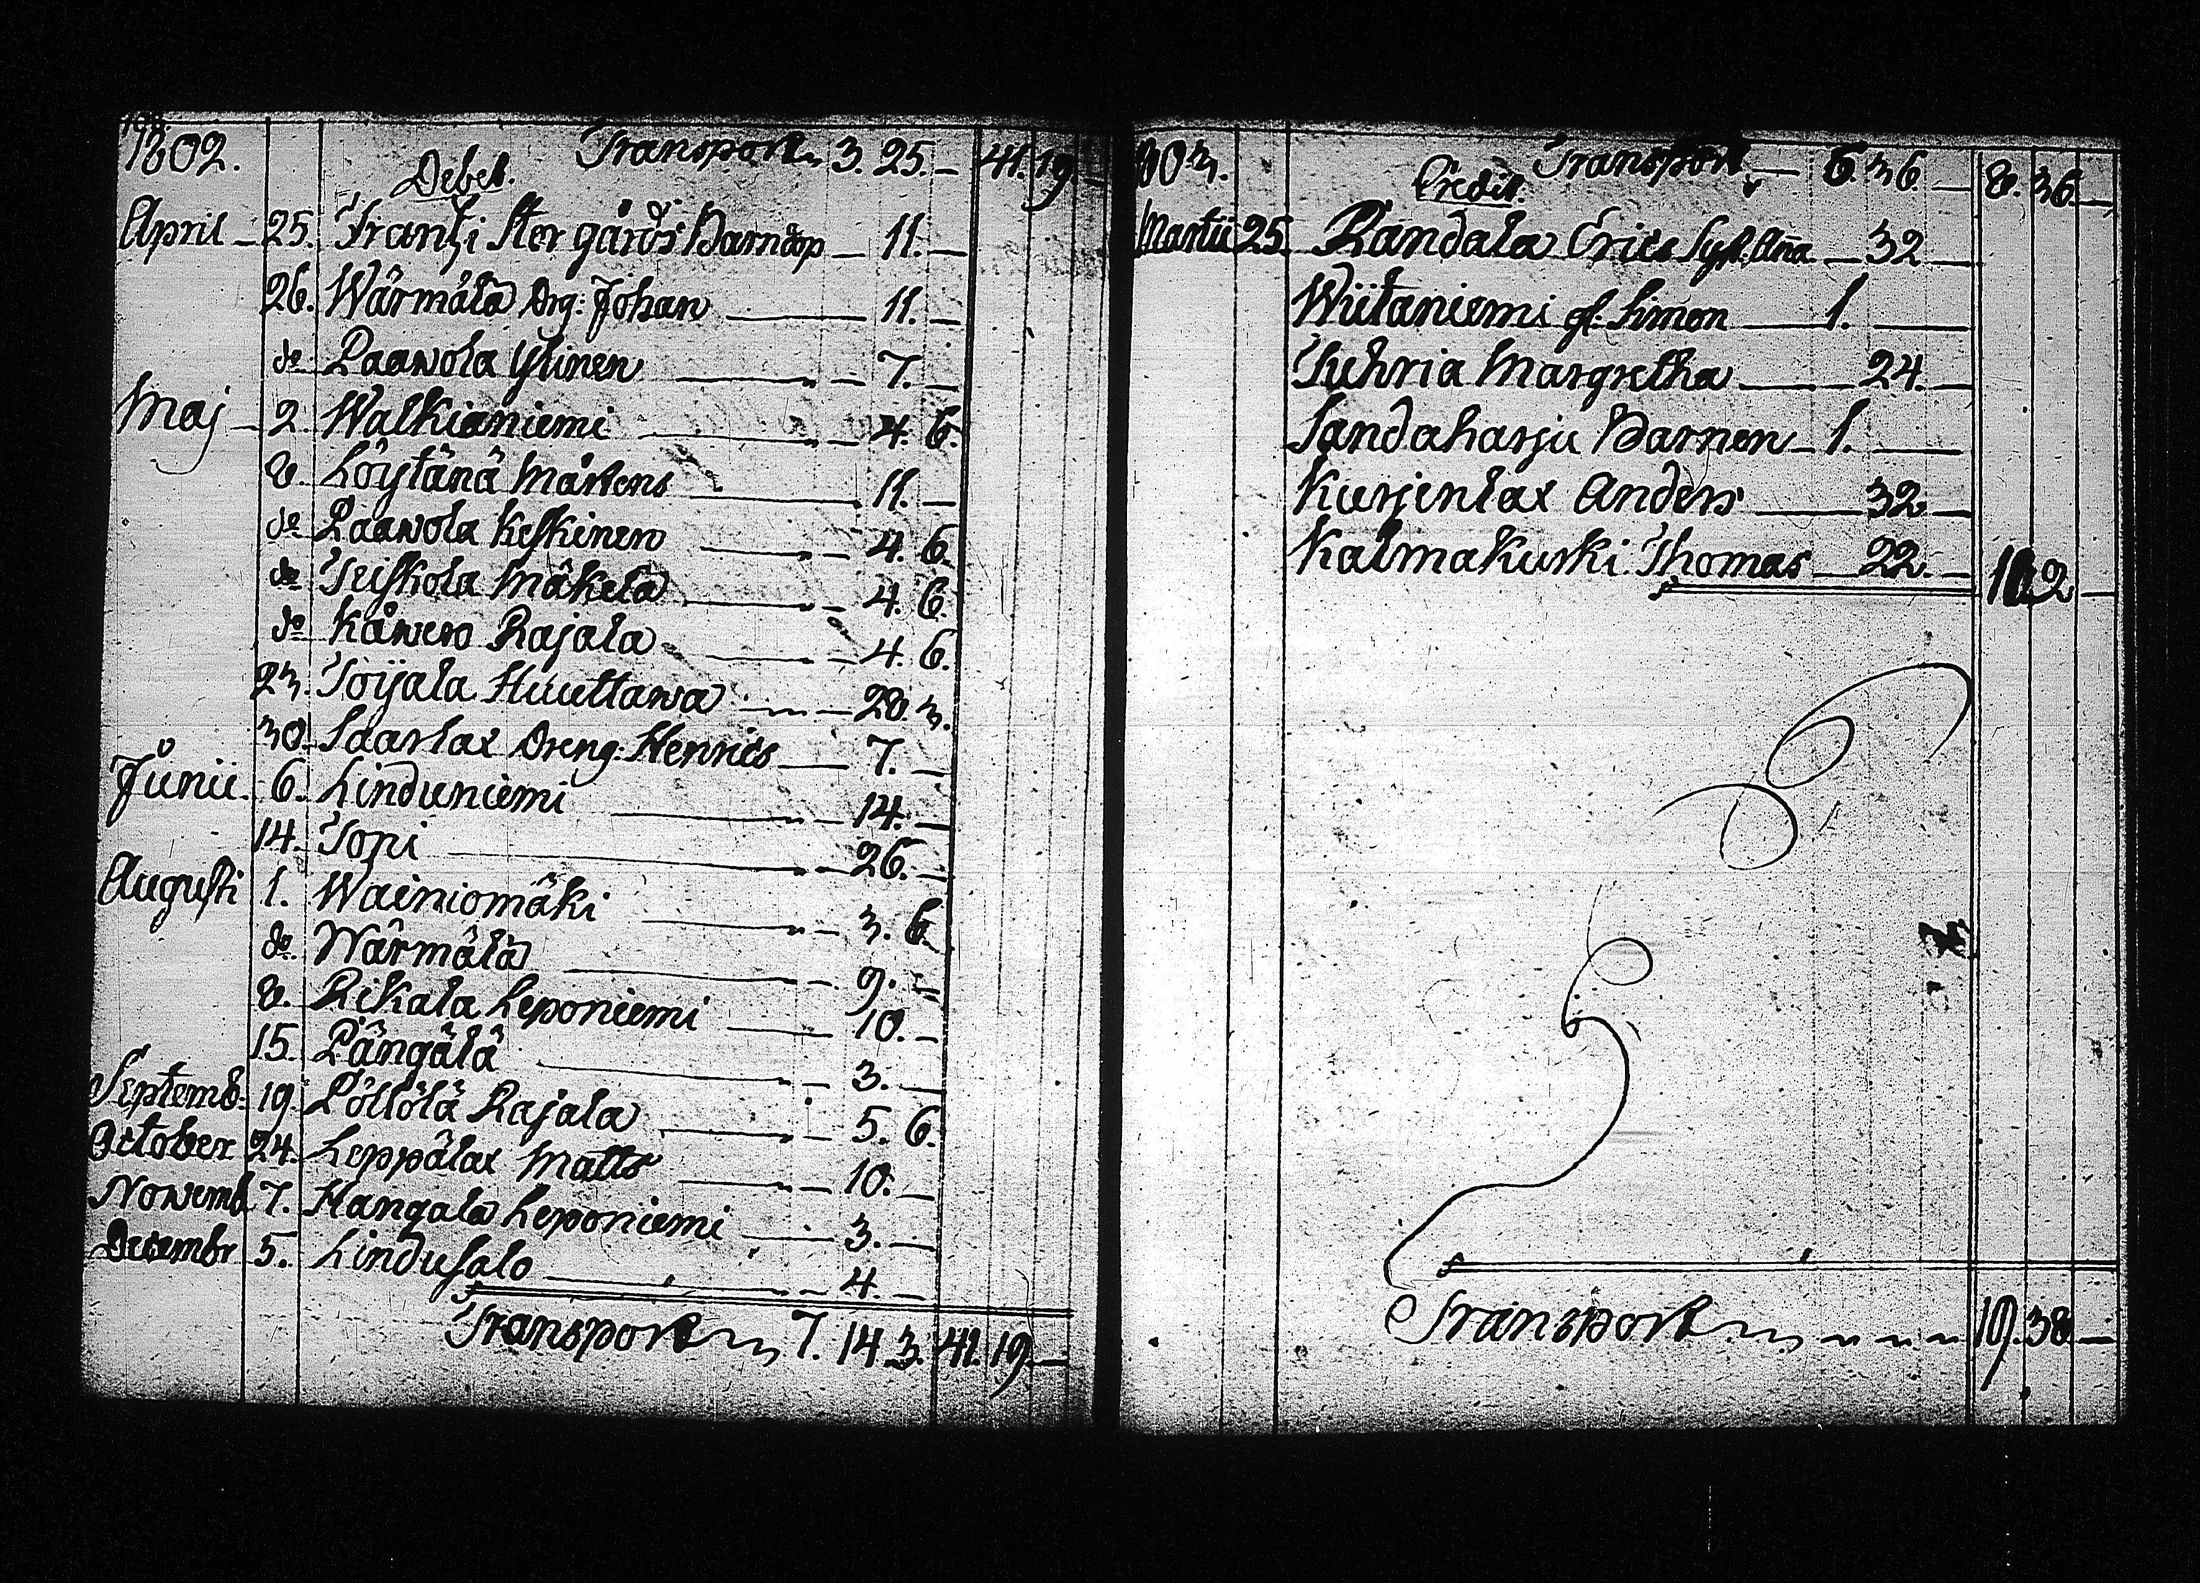 1802. Debet. Transport 3. 25. — 41. 19. —
April — 25. Frantzi Stergårds Barndop — 11. —
26. Wärmälä Drg: Johan — 11. —
do Paawola Ylinen — 7. —
Maj — 2. Walkianiemi — 4. 6.
8. Löytänä Mårtens — 11. —
do Paawola Keskinen — 4. 6.
do Teiskola Mäkelä — 4. 6.
do Kåwero Rajala — 4. 6.
23. Toijala Huuttawa — 28. 3.
30. Saarlax Dreng: Henrics — 7. —
Junii. 6. Linduniemi — 14. —
14. Topi — 26. —
Augusti 1. Wainiomäki — 3. 6.
do. Wärmälä — 9. —
8. Rikala Leponiemi — 10. —
15. Pängälä — 3. —
Septemb: 19. Pöllölä Rajala — 5. 6.
October 24. Leppälax Matts — 10. —
Nowemb 7. Hangala Leponiemi — 3. —
Decembr 5. Lindusalo — 4. —
Transport 7. 14. 3. 41. 19. —
803. Credit. Transport — 6. 36. — 8. 36. —
Martii 25. Randala Erics Syst. Aña — 32 —
Wiitaniemi gl. Simon — 1. —
Tuhria Margretha — 24. —
Sandaharju Barnen — 1. —
Kurjenlax Anders — 32 —
Kalmakurki Thomas — 22. — 2 —
Transport — 19. 38 —